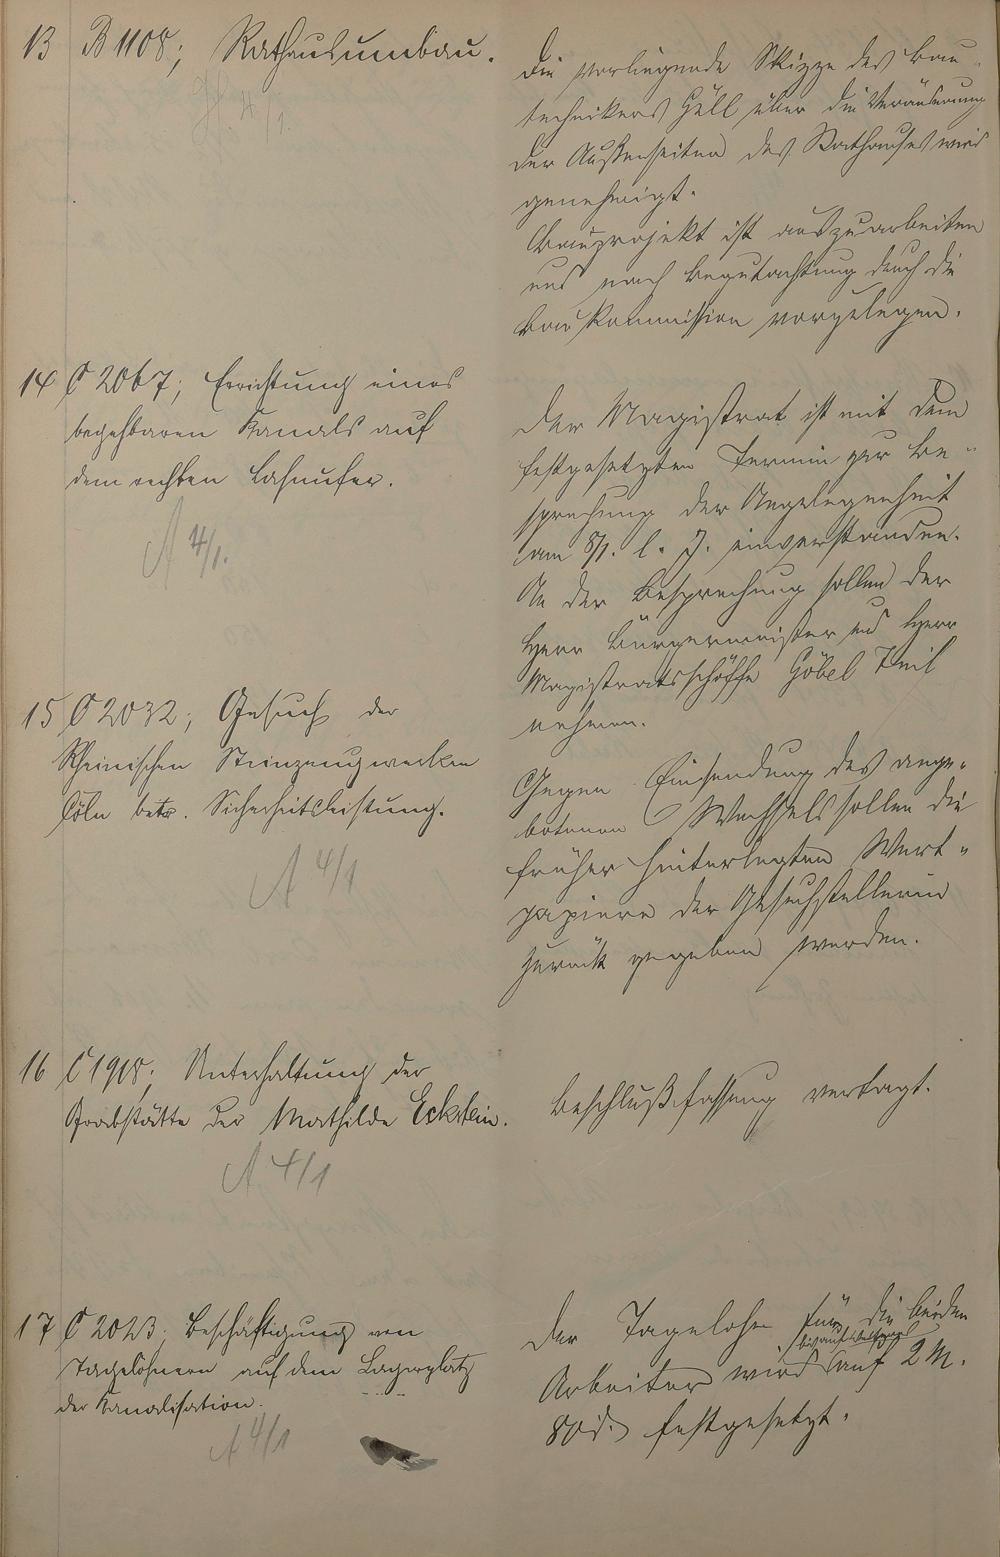 13 B 1108; Rathausumbau.
4/1.
Die vorliegende Skizze des Bau-
technikers Göll über die Veränderung
der Außenseiten des Rathauses wird
genehmigt.
Bauprojekt ist auszuarbeiten
und nach Begutachtung durch die
Baukommission vorzulegen.
14 C 2067; Errichtung eines
begehbaren Kanals auf
dem rechten Lahnufer.
A 4/1.
Der Magistrat ist mit dem
festgesetzten Termin zur Be-
sprechung der Angelegenheit
am 8/1. l. J. einverstanden.
An der Besprechung sollen der
Herr Bürgermeister und Herr
Magistratsschöffe Göbel Teil
nehmen.
15 C 2032; Gesuch der
Rheinischen Steinzeugwerken
Cöln betr. Sicherheitsleistung.
A 4/1
Gegen Einsendung des ange-
botenen Wechsels sollen die
früher hinterlegten Wert-
papiere der Gesuchstellerin
zurück gegeben werden.
16 C 1918. Unterhaltung der
Grabstätte der Mathilde Eckstein.
A 4/1
Beschlußfassung vertagt.
17 C 2023. Beschäftigung von
Tagelöhnern auf dem Lagerplatz
der Kanalisation.
A 4/1
Der Tagelohn für die beiden
bis auf weiteres
Arbeiter wird auf 2 M.
80 d. festgesetzt.